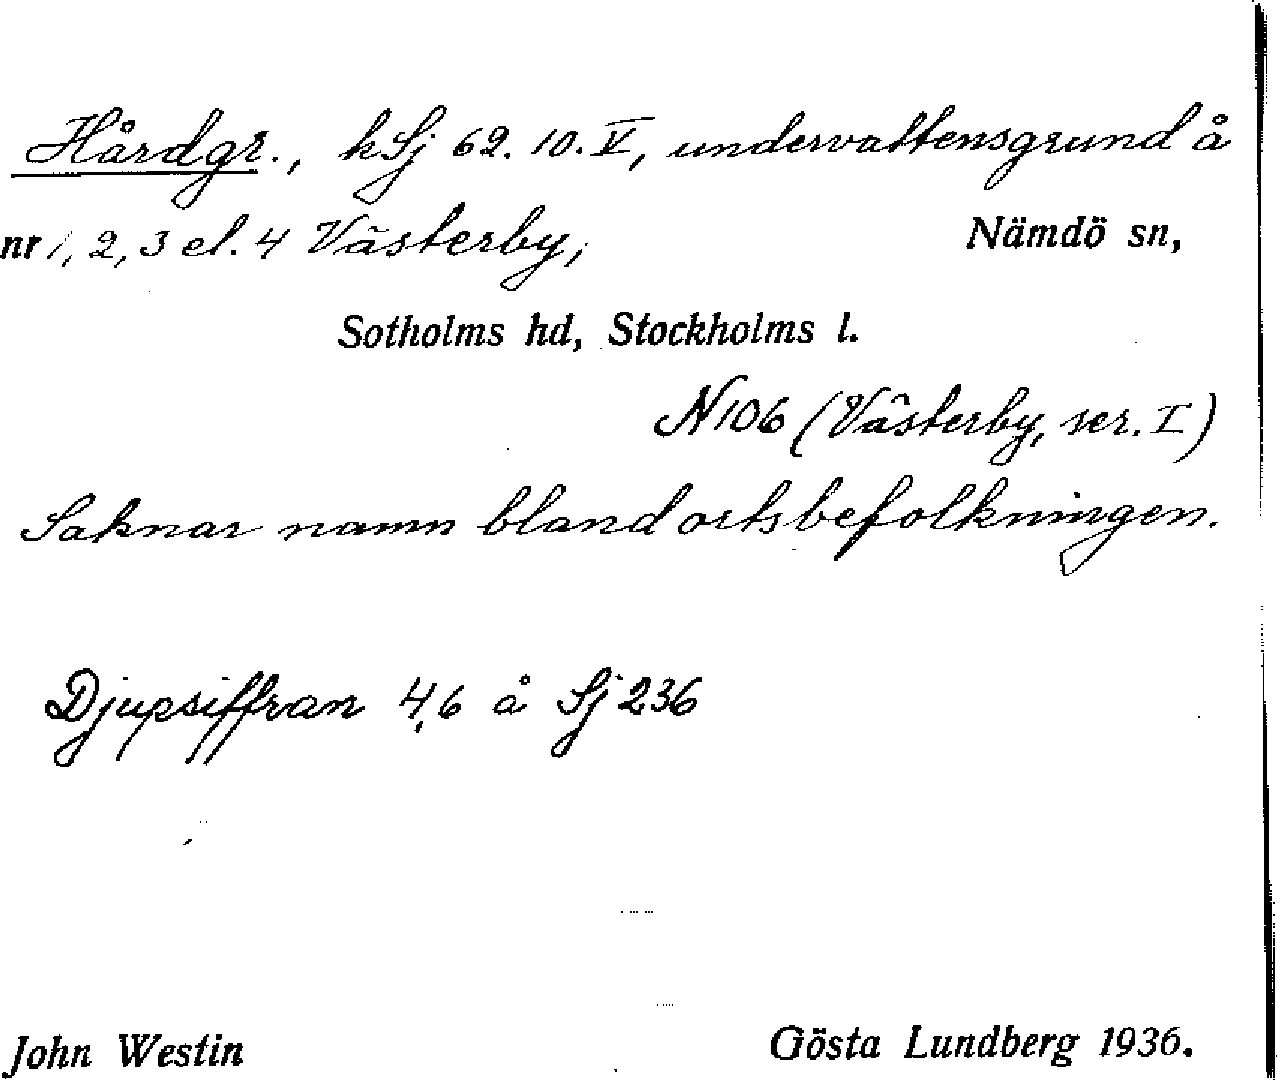 Hårdgr., kSj 62.10.V, undervattensgrund å
nr 1, 2, 3 el. 4 Västerby, Nämdö sn,
Sotholms hd, Stockholms l.
N106 (Västerby, ser. I)
Saknar namn bland ortsbefolkningen.
Djupsiffran 4,6 å Sj 236
John Westin Gösta Lundberg 1936.